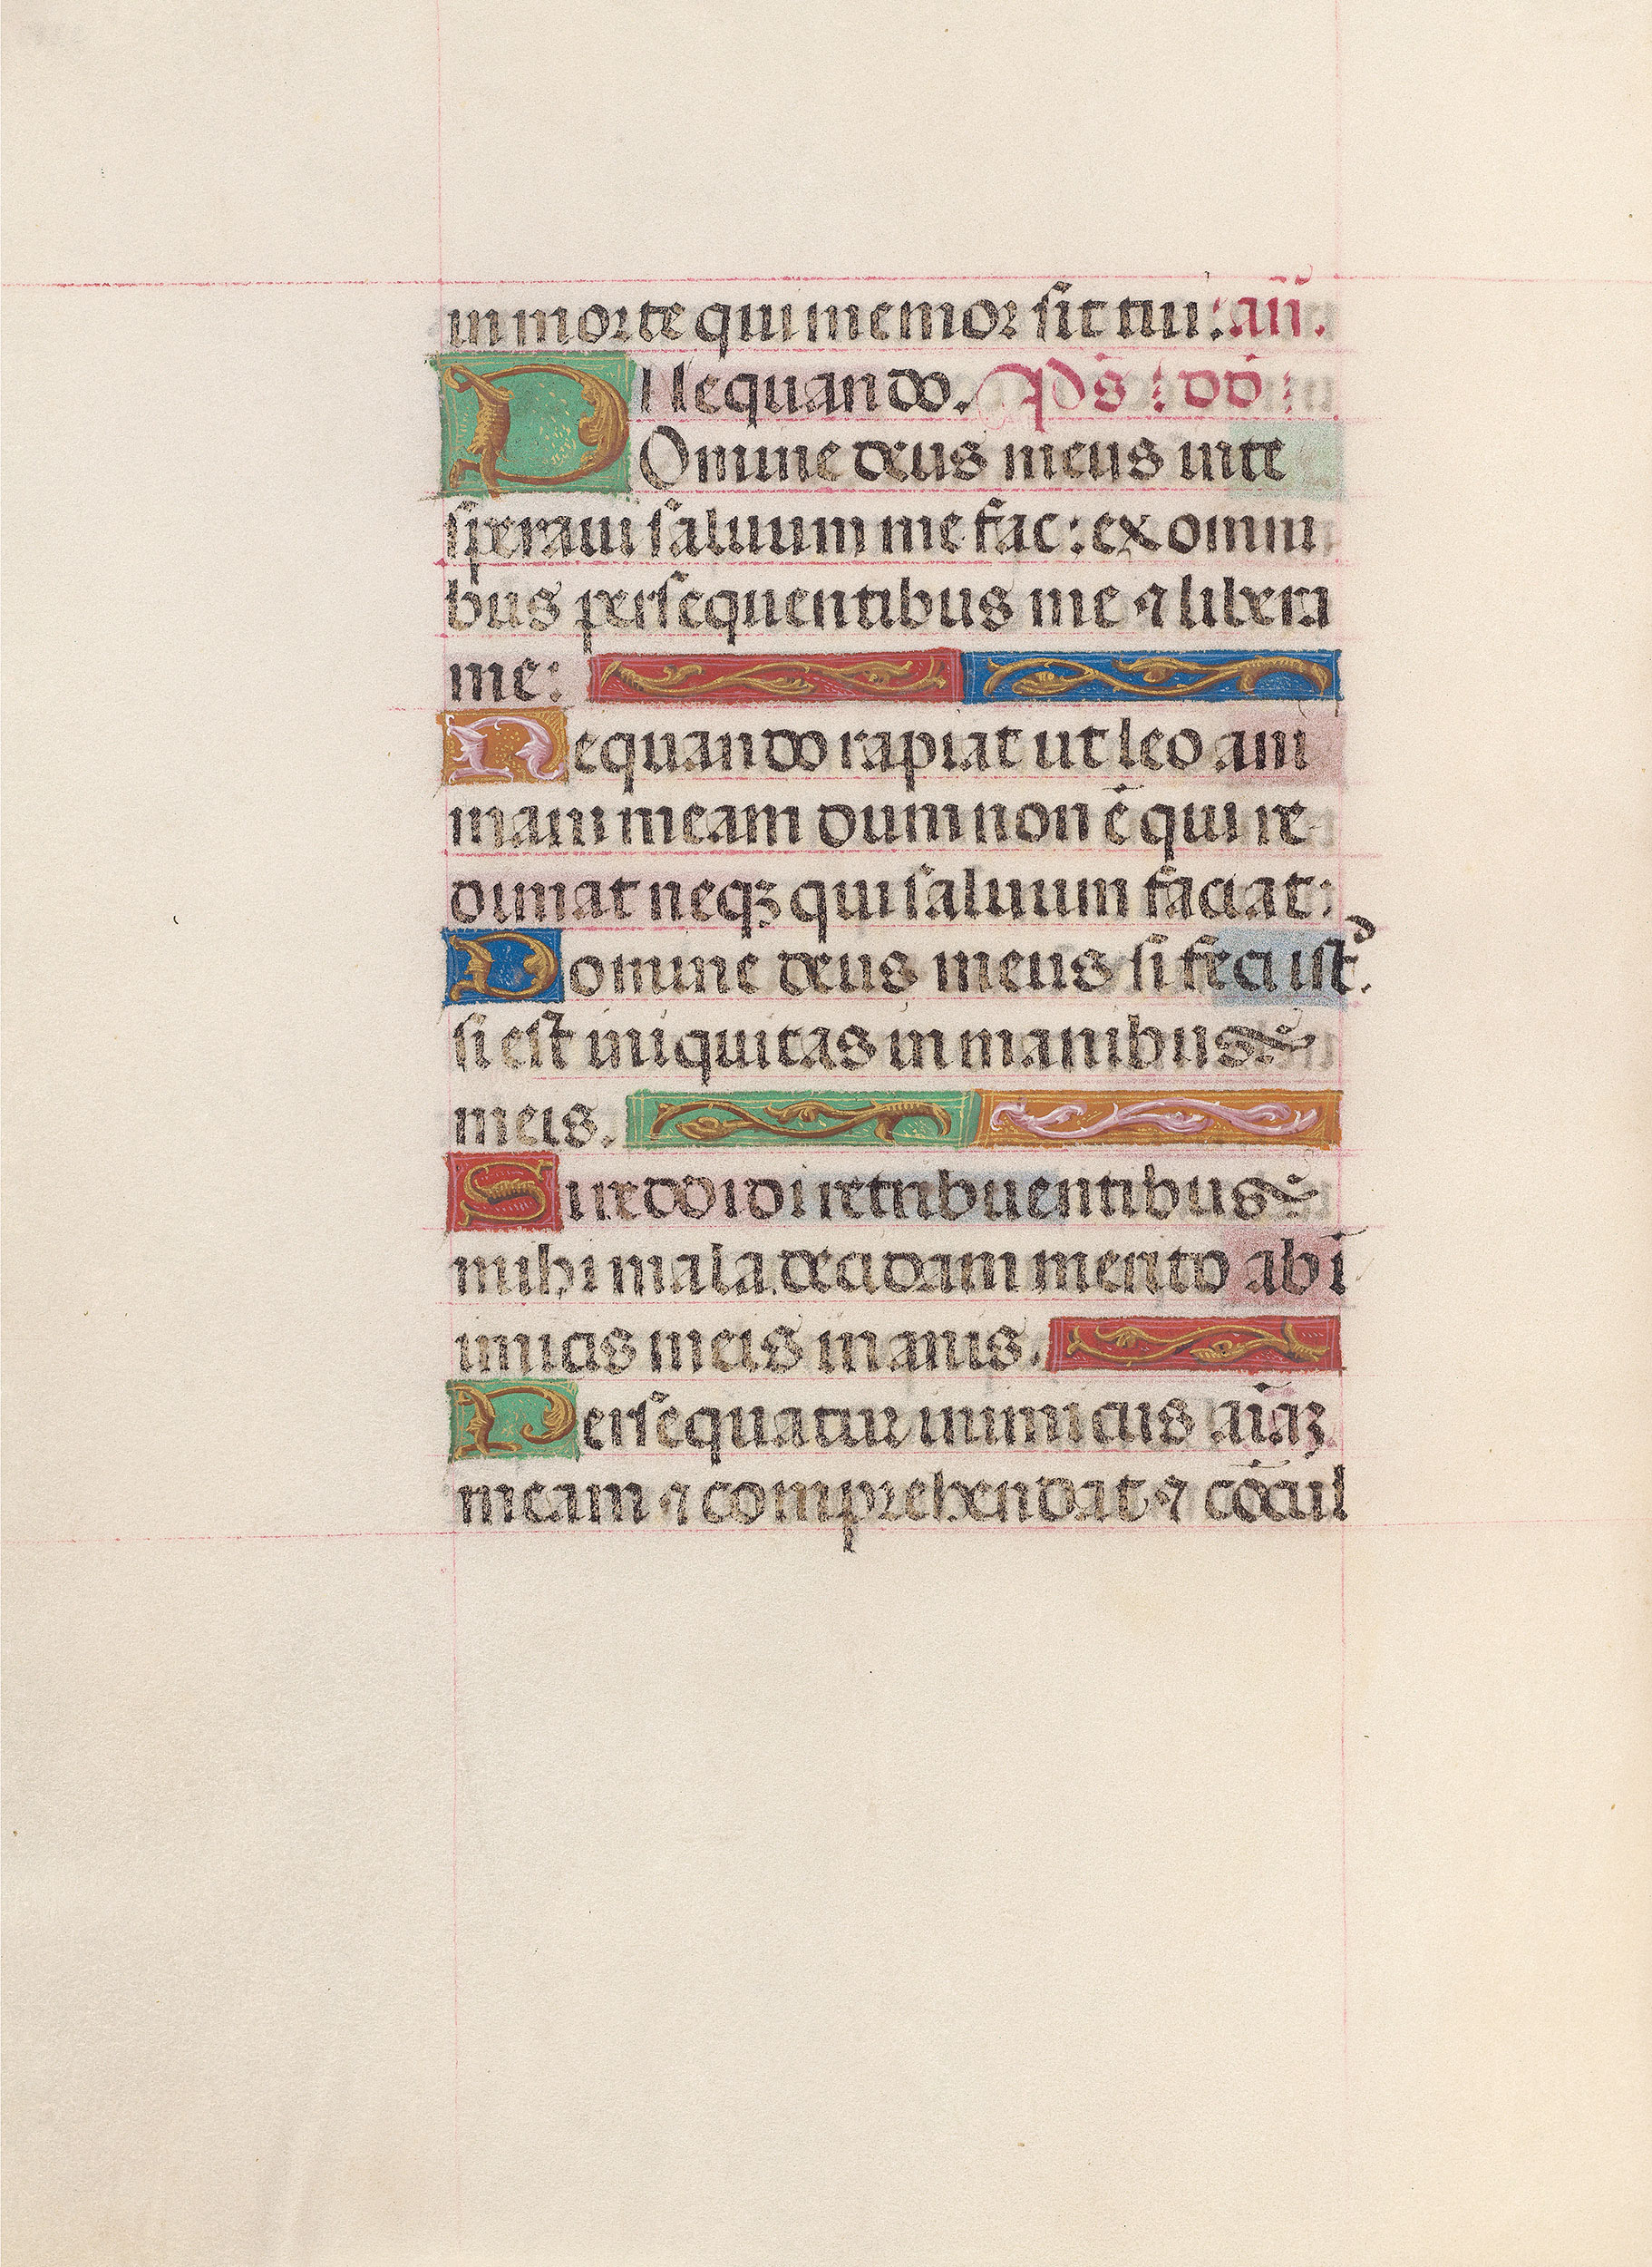 in morte qui memor sit tui: añ.
Nequando. Ps: dd:
Domine deus meus in te
speraui saluum me fac: ex omni
bus persequentibus me ⁊ libera
me:
Nequando rapiat ut leo ani
mam meam dum non ē qui re
dimat neqꝫ qui saluum faciat:
Domine deus meus si feci istᵈ.
si est iniquitas in manibus
meis.
Si reddidi retribuentibus
mihi mala decidam merito ab ī
imicis meis inanis.
Persequatur inimicus aīaꝫ
meam ⁊ comprehendat ⁊ cōcul